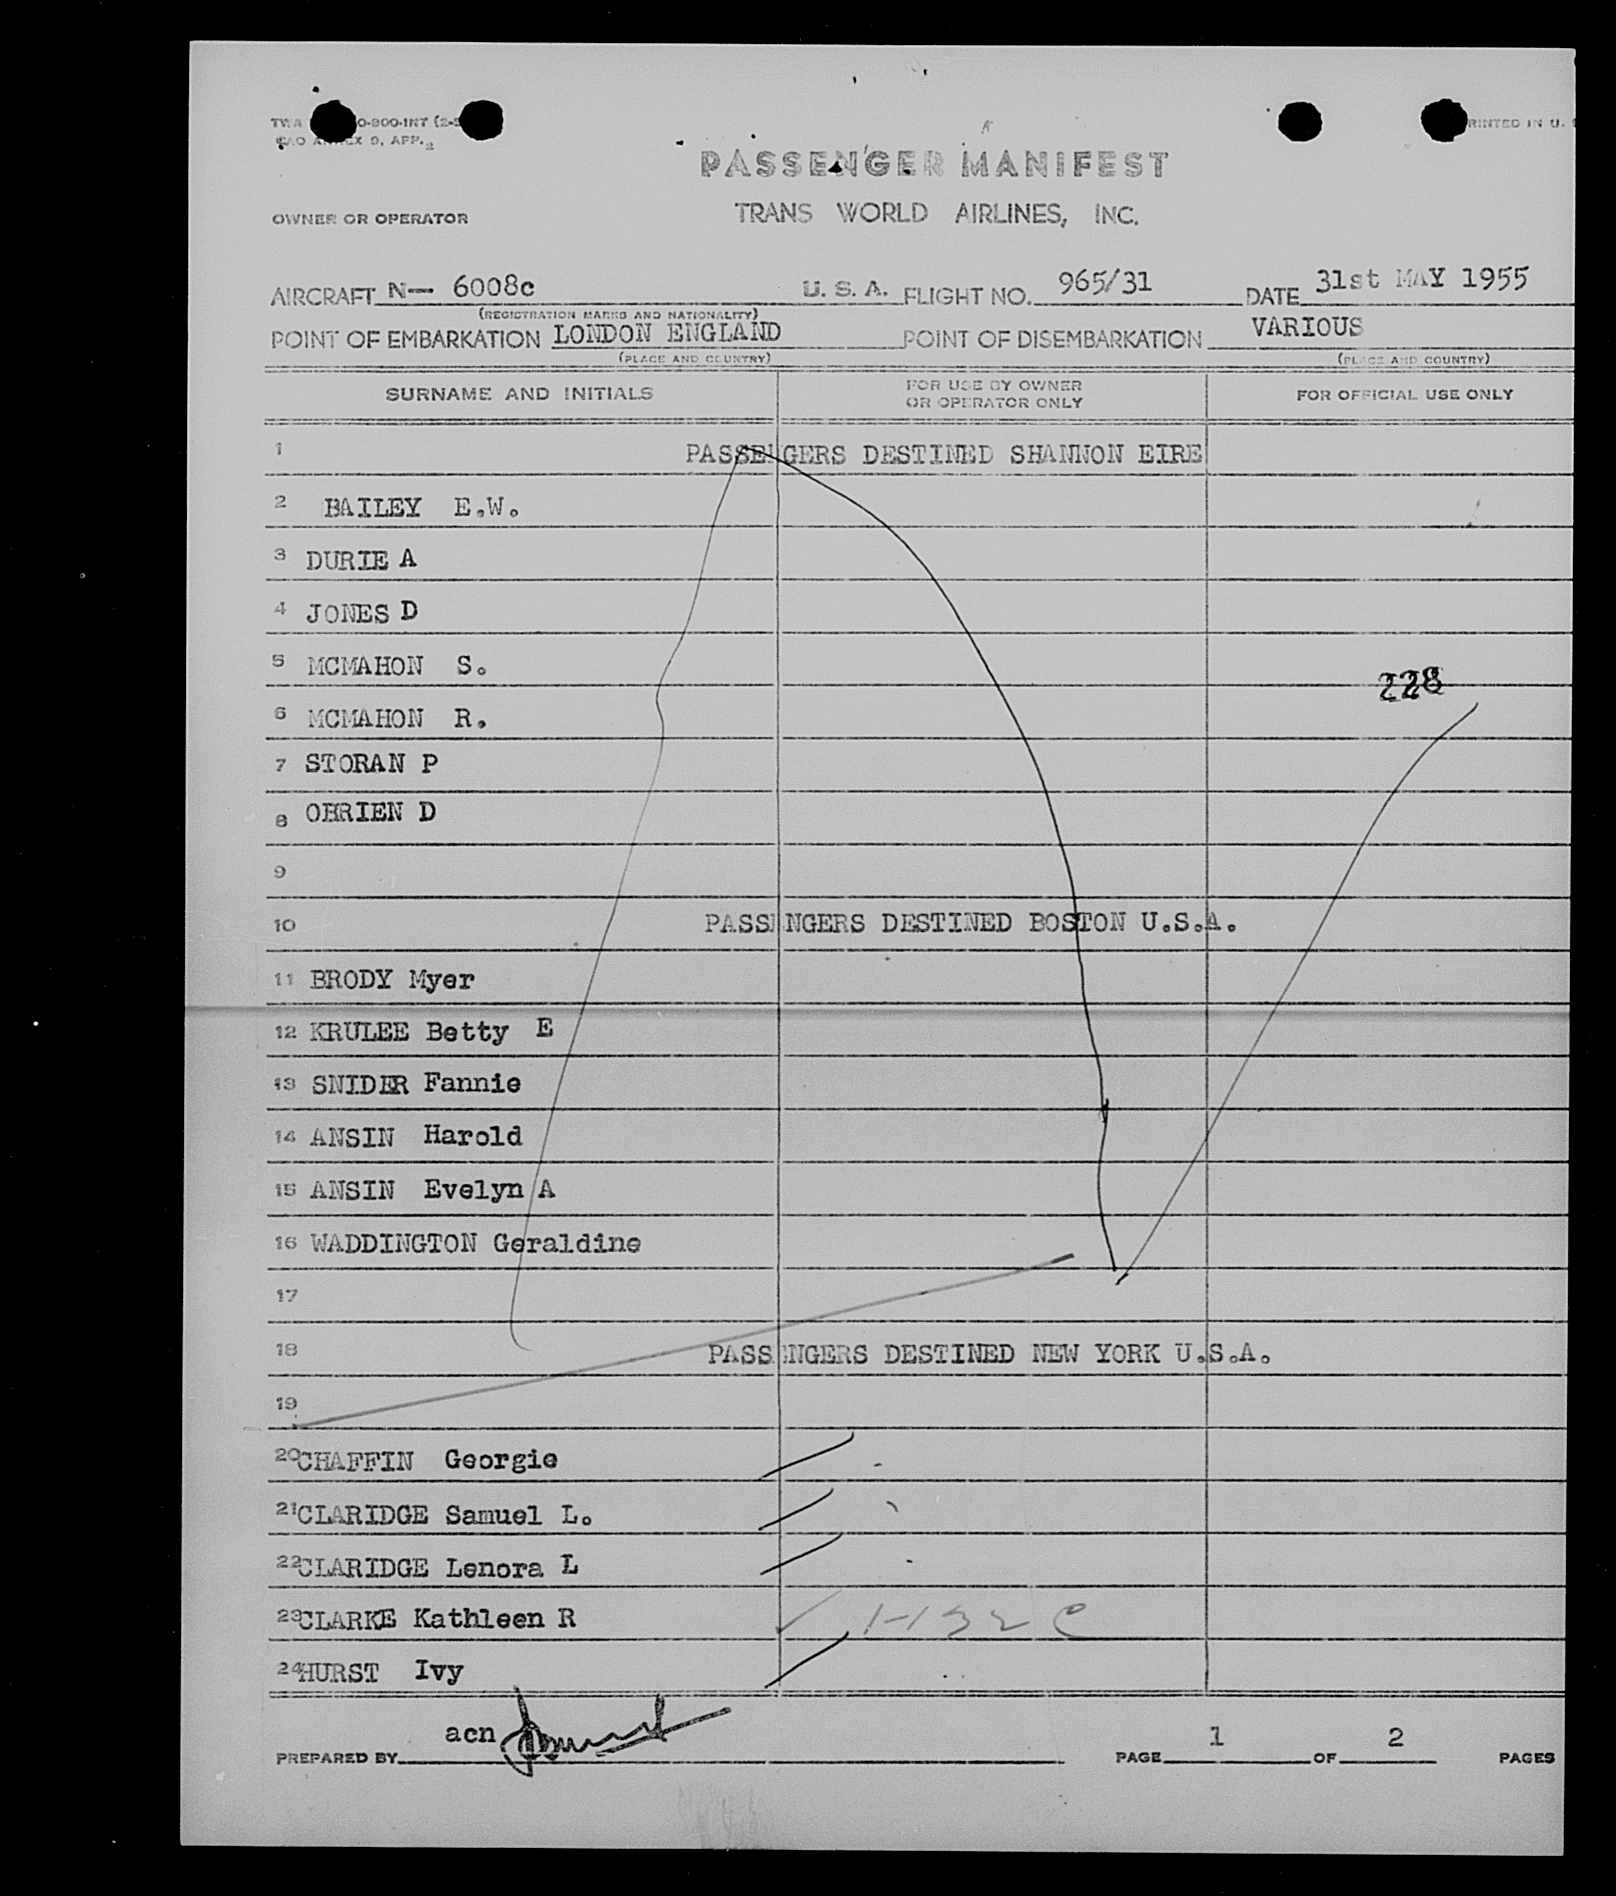 TWA O-900-INT (2-
ICAO ANNEX 9, APP. 2
PRINTED IN U.
PASSENGER MANIFEST
OWNER OR OPERATOR TRANS WORLD AIRLINES, INC.
AIRCRAFT N— 6008c U. S. A. FLIGHT NO. 965/31 DATE 31st MAY 1955
(REGISTRATION MARKS AND NATIONALITY)
POINT OF EMBARKATION LONDON ENGLAND POINT OF DISEMBARKATION VARIOUS
(PLACE AND COUNTRY) (PLACE AND COUNTRY)
SURNAME AND INITIALS FOR USE BY OWNER OR OPERATOR ONLY FOR OFFICIAL USE ONLY
1 PASSENGERS DESTINED SHANNON EIRE
2 BAILEY E.W.
3 DURIE A
4 JONES D
5 MCMAHON S.
228
6 MCMAHON R.
7 STORAN P
8 OBRIEN D
9
10 PASSENGERS DESTINED BOSTON U.S.A.
11 BRODY Myer
12 KRULEE Betty E
13 SNIDER Fannie
14 ANSIN Harold
15 ANSIN Evelyn A
16 WADDINGTON Geraldine
17
18 PASSENGERS DESTINED NEW YORK U.S.A.
19
20 CHAFFIN Georgie
21 CLARIDGE Samuel L.
22 CLARIDGE Lenora L
23 CLARKE Kathleen R
24 HURST Ivy
PREPARED BY acn PAGE 1 OF 2 PAGES